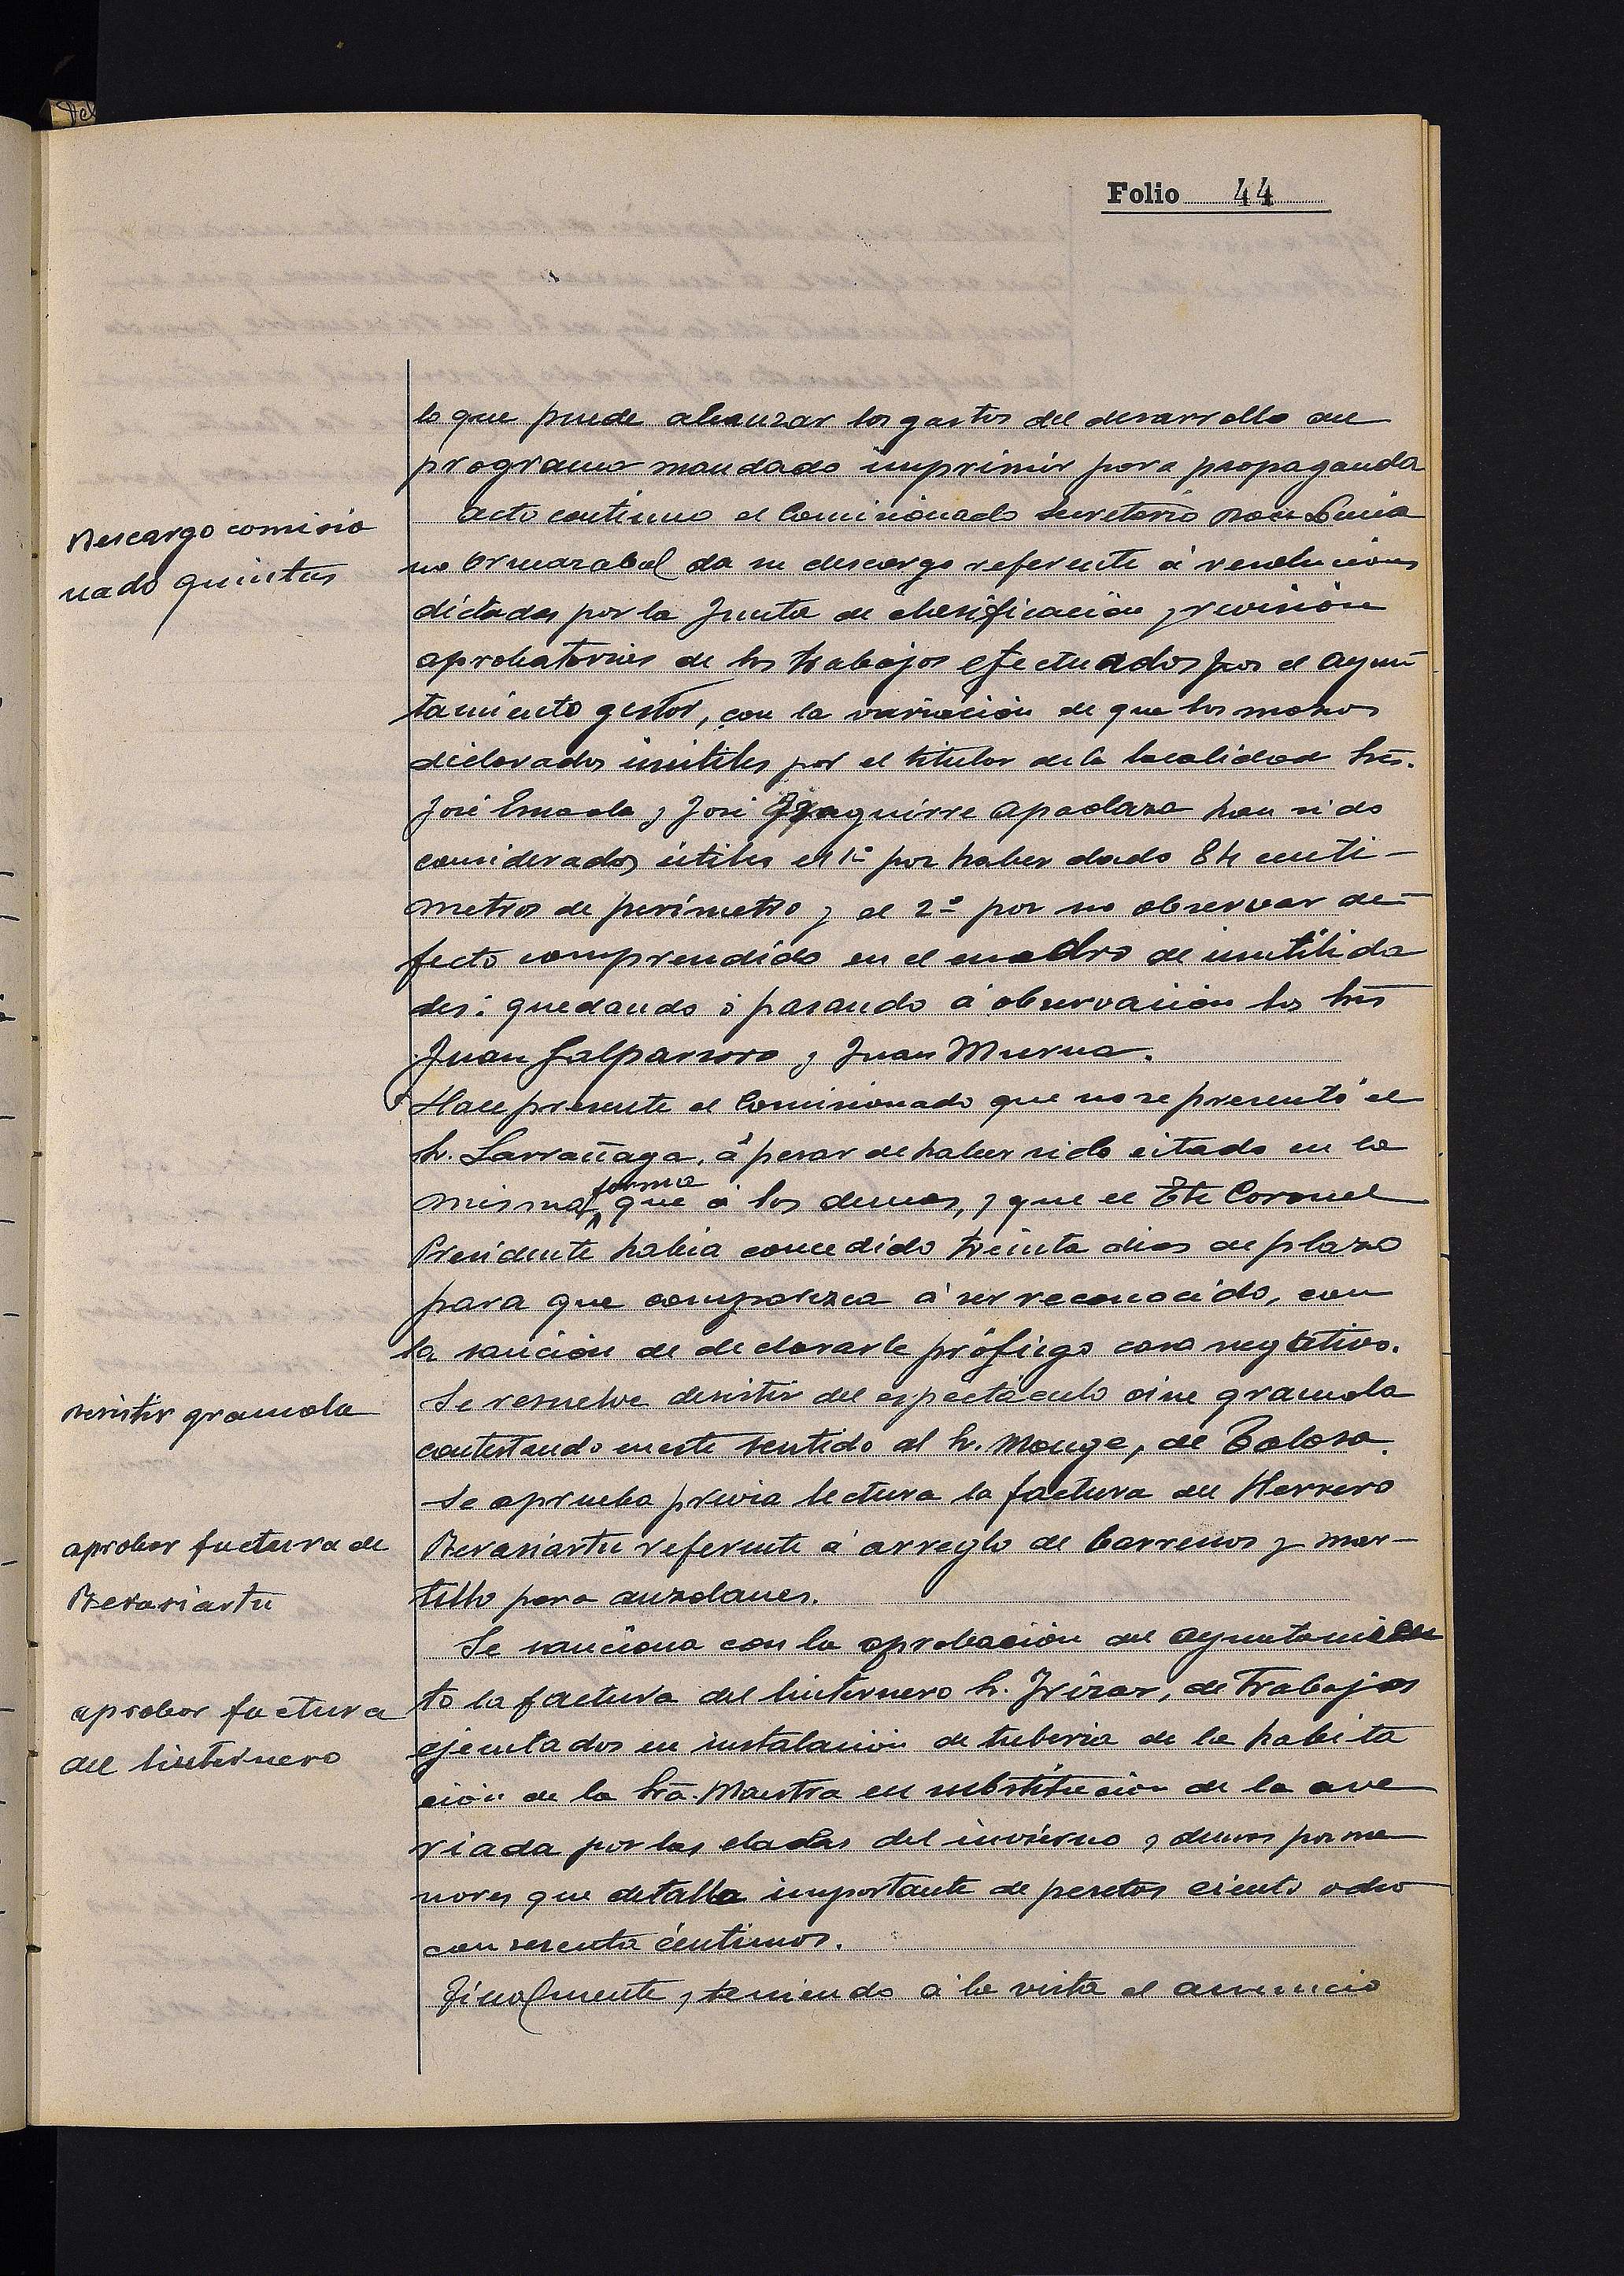 Folio 44
lo que puede alcanzar los gastos del desarrollo del
programa mandado imprimir para propaganda
Descargo comisio
nado quintas
Acto continuo el Comisionado Secretario Don Lucia
no Ormazabal da su descargo referente á resoluciones
dictadas por la Junta de clasificación y revisión
aprobatorias de los trabajos efectuados por el Ayun
tamiento gestor, con la variación de que los mozos
declarados inútiles por el titular de la localidad Srs.
José y José Yzaguirre Apaolaza han sido
considerados útiles el 1º por haber dado 84 centi-
metros de perímetro y el 2º por no observar de-
fecto comprendido en el cuadro de inutilida
des: quedando ó pasando á observación los Srs
Juan Galparsoro y Juan Murua.
Hace presente el Comisionado que no se presentó el
Sr. Larrañaga, á pesar de haber sido citado en la
misma forma que á los demas, y que el Tte Coronel
Presidente habia concedido treinta dias de plazo
para que comparezca á ser reconocido, con
la sanción de declararle prófugo caso negativo.
Desistir gramola
Se resuelve desistir del espectáculo cine gramola
contestando en este sentido al Sr. Monge, de Tolosa.
Se aprueba previa lectura la factura del Herrero
aprobar factura de
Berasiartu
Berasiartu referente á arreglo de barrenos y mar-
tillo para auzolanes.
Se sanciona con la aprobación del Ayuntamien
aprobar factura
del linternero
to la factura del linternero Sr. Irizar, de trabajos
ejecutados en instalación de tuberia de la habita
ción de la Sra. Maestra en substitución de la ave
riada por las eladas del invierno y demas porme
nores que detalla importante de pesetas ciento ocho
con sesenta céntimos.
Finalmente, teniendo á la vista el anuncio